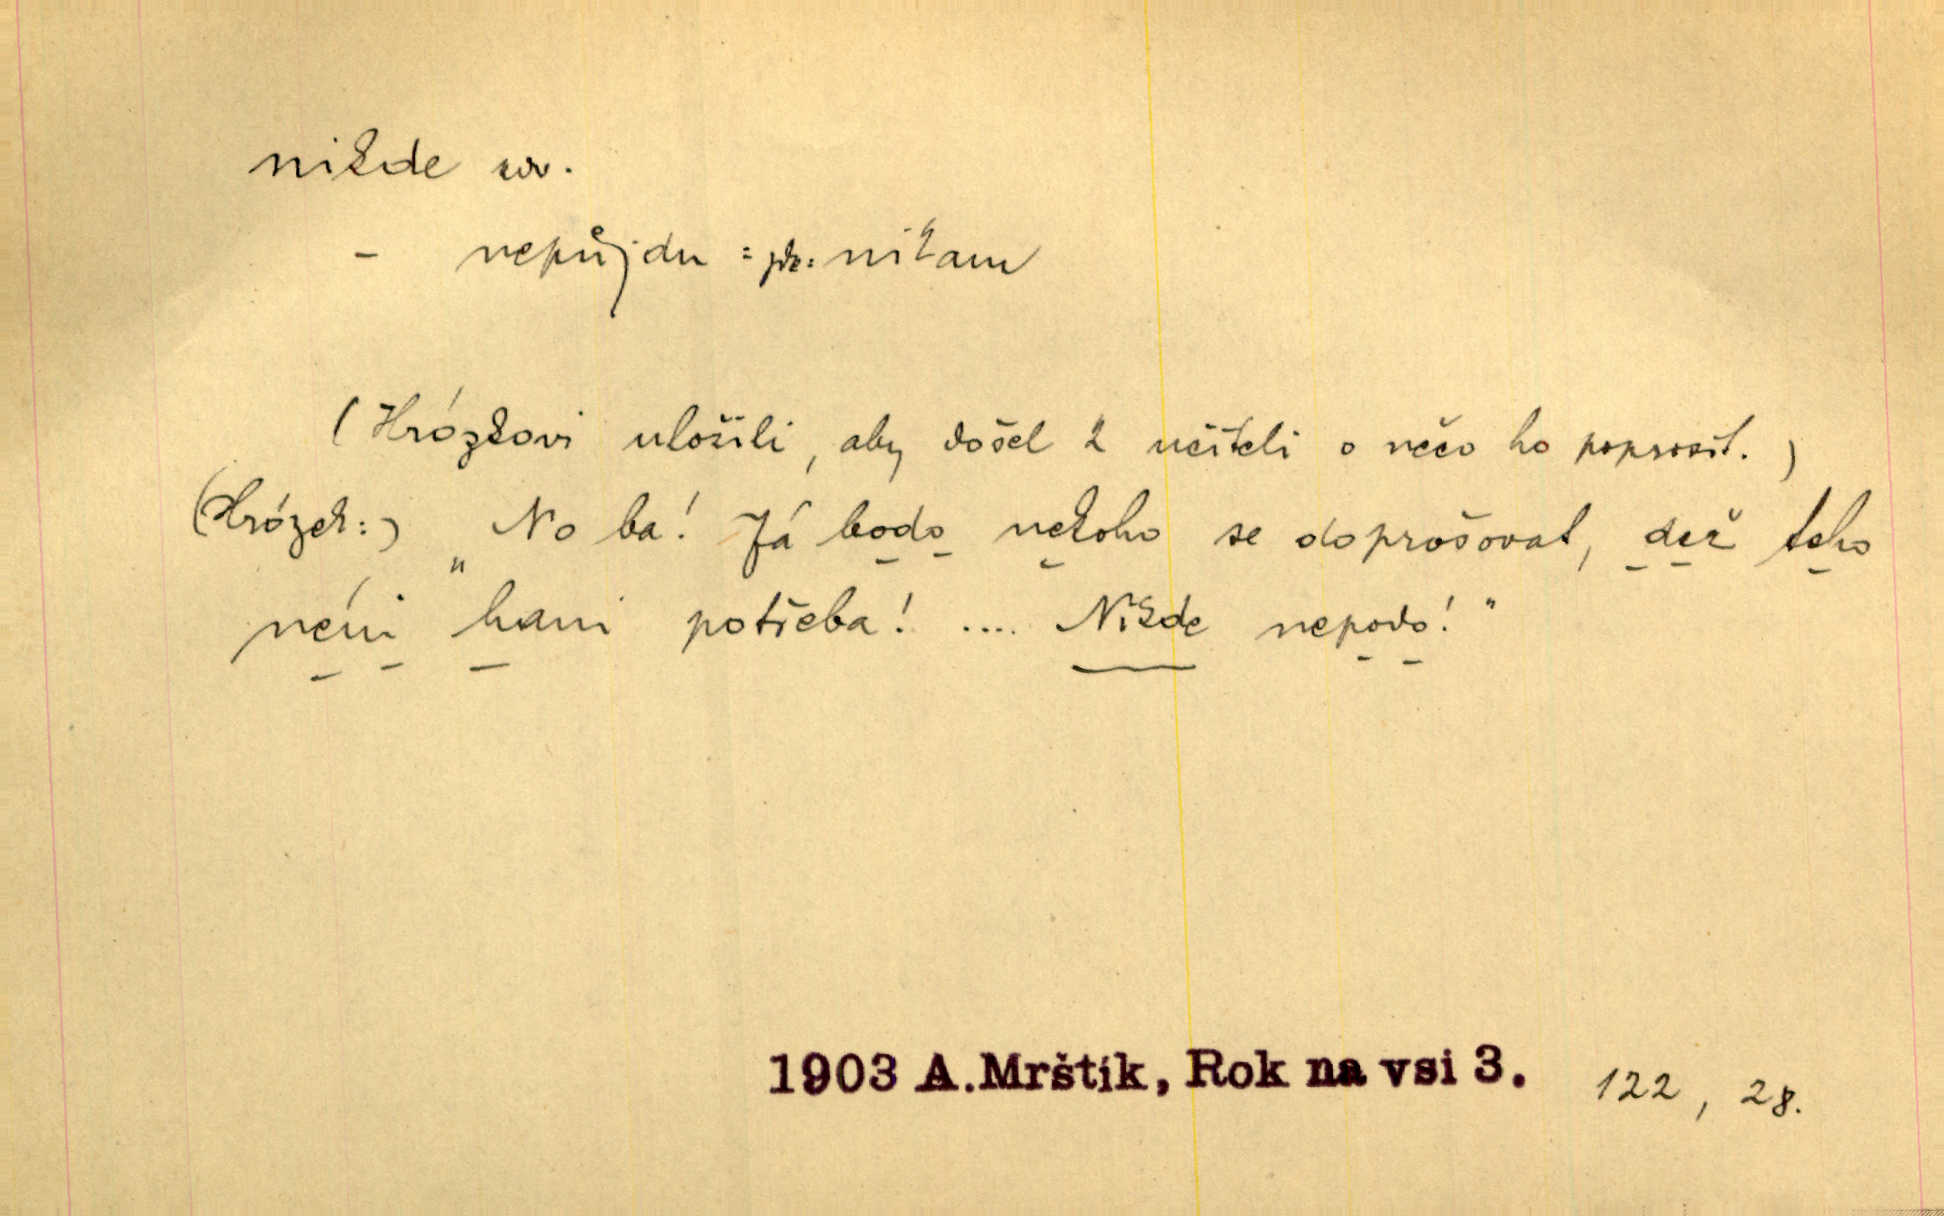 nikde adv.
– nepůjdu = nikam
(Hrózkovi uložili, aby došel k učiteli o nečo ho poprosit.)
(Hrózek:) „No ba! Já bodo nekoho se doprošovat, dež teho
néni hani potřeba! .... Nikde nepodo!“
1903 A.Mrštík, Rok na vsi 3. 122, 28.